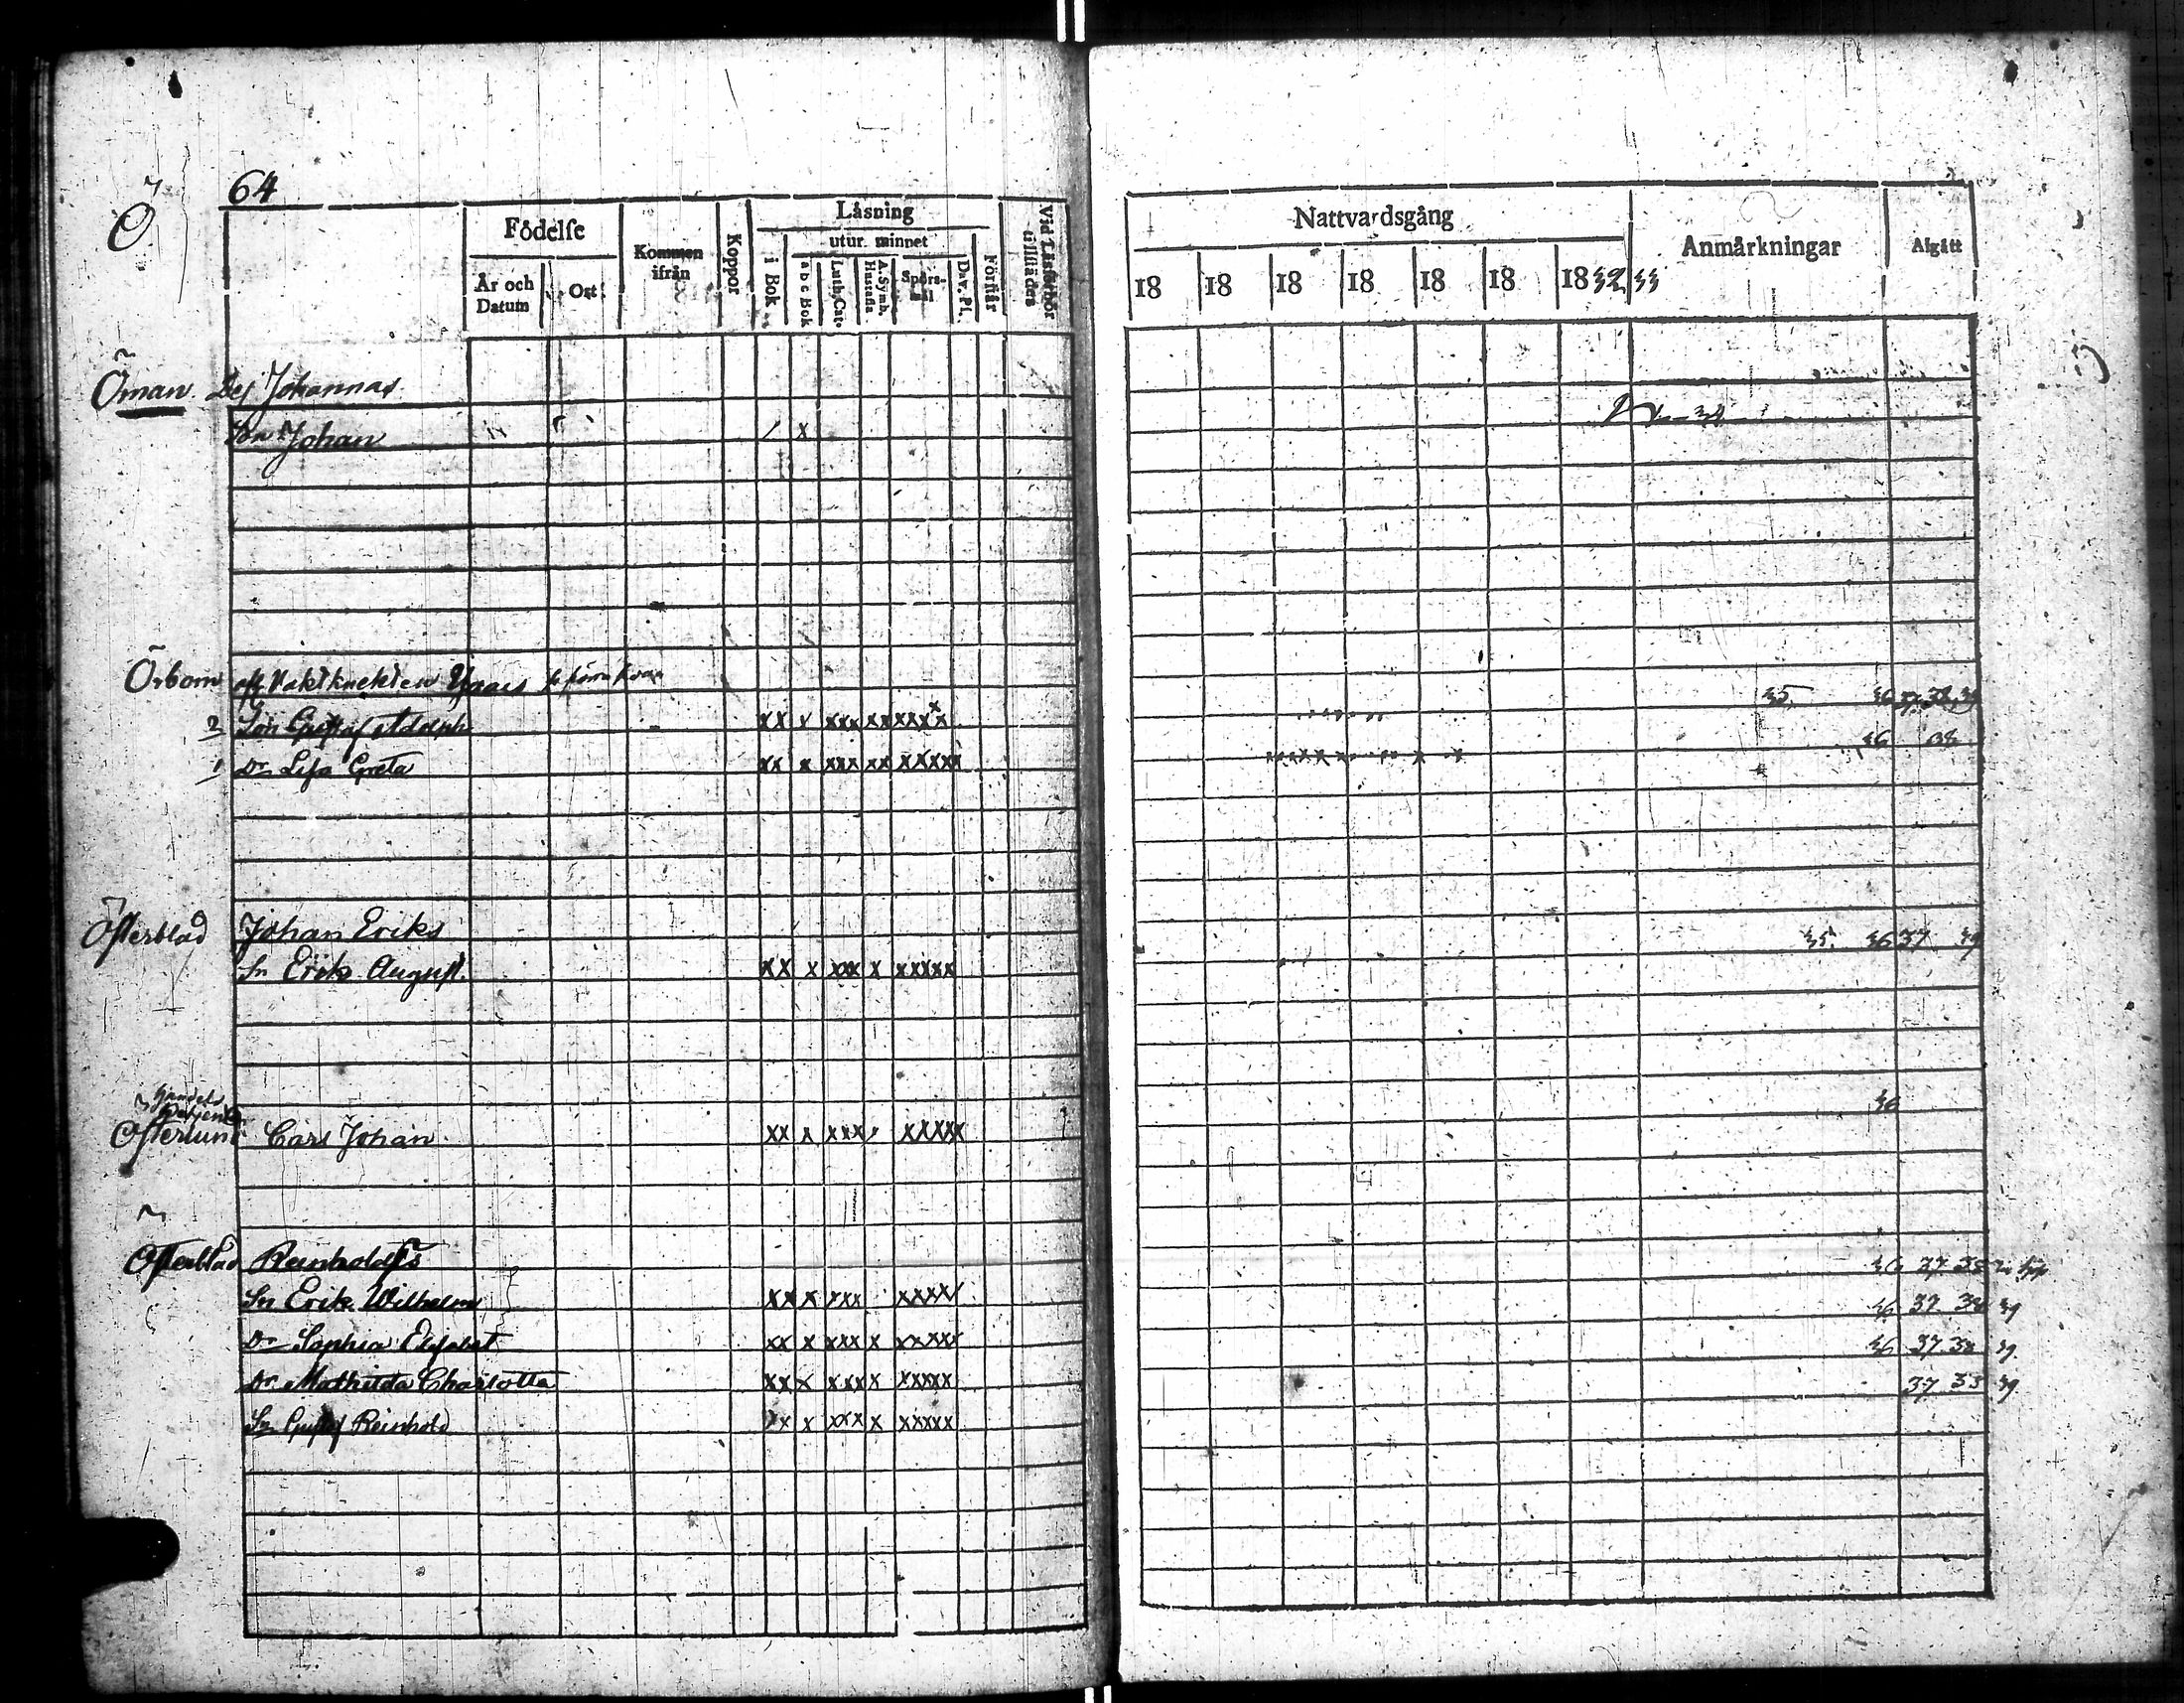 64
Ö.
Födelse
År och Datum
Ort
Kommen ifrån
Koppor
Läsning
i Bok
utur minnet
a b c Bok
Luth. Cat.
A. Symb. Hustafla
Spörsmål
Dav. Ps.
Förstår
Vid Läsförhör tillstädes
Nattvardsgång
18 18 18 18 18 18 18 32 33
Anmärkningar
Afgått
Öman Dej Johannas
Son Johan / x
34
Örbom Vaktknekten
35. 36 37. 38, 39
2 Son Gustaf Adolph xx x xxx xx xxxx x
36 38
1 Dr Lisa Greta xx x xxx xx xxxxx
Österblad Johan Eriks
35. 36 37 39
Sn Erik August. xx x xxx x xxxxx
36
Österlund Carl Johan xx x xxx xxxxx
Österblad Reinholds
36 37 38
Sn Erik Wilhelm xx x xxx xxxxx
36 37 38 39
Dr Sophia Elisabet xx x xxx x xxxxx
36 37 38 39
Dr Mathilda Charlotta xx x xxx x xxxxx
37 38 39
Sn Gustaf Reinhold xx x xxx x xxxxx